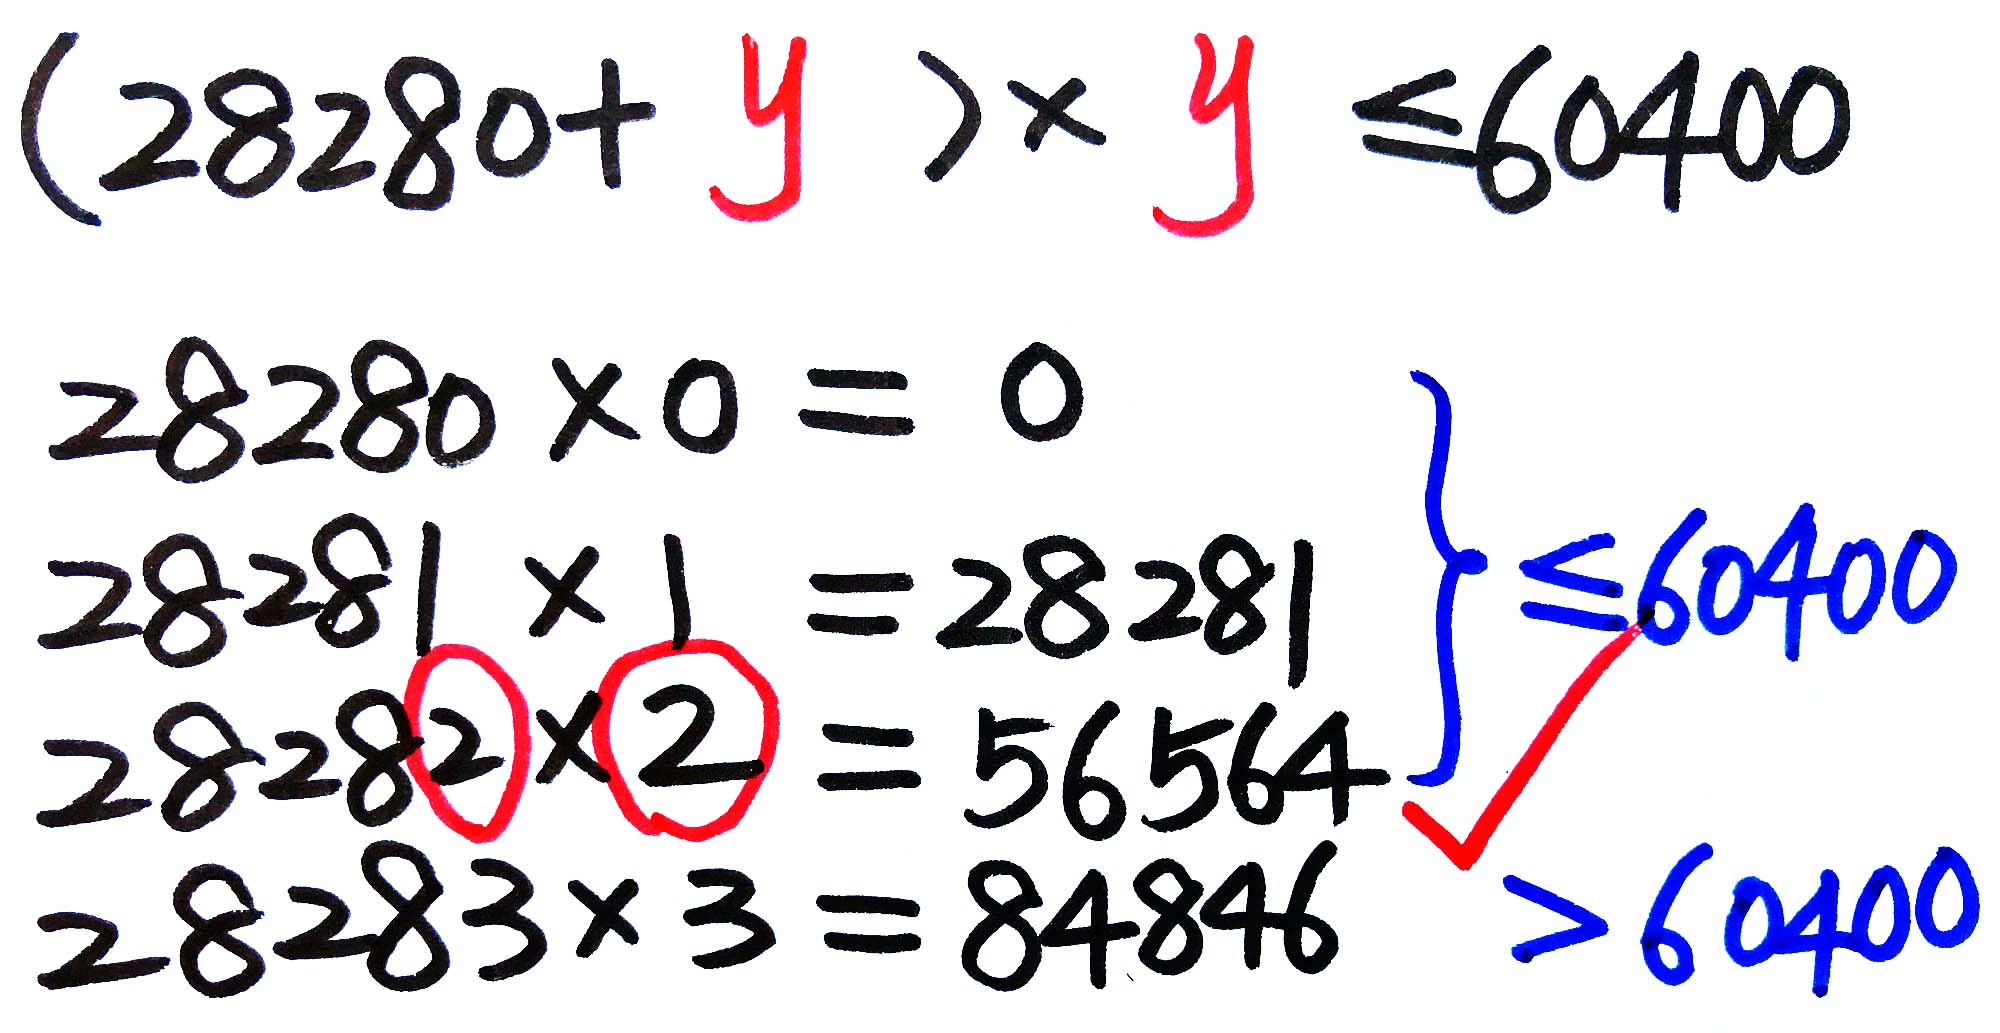 (28280+ y )× y ≤60400
28280 ×0 = 0
28281 × 1 =28281
≤60400
28282×2 = 56564
28283×3 =84846 >60400